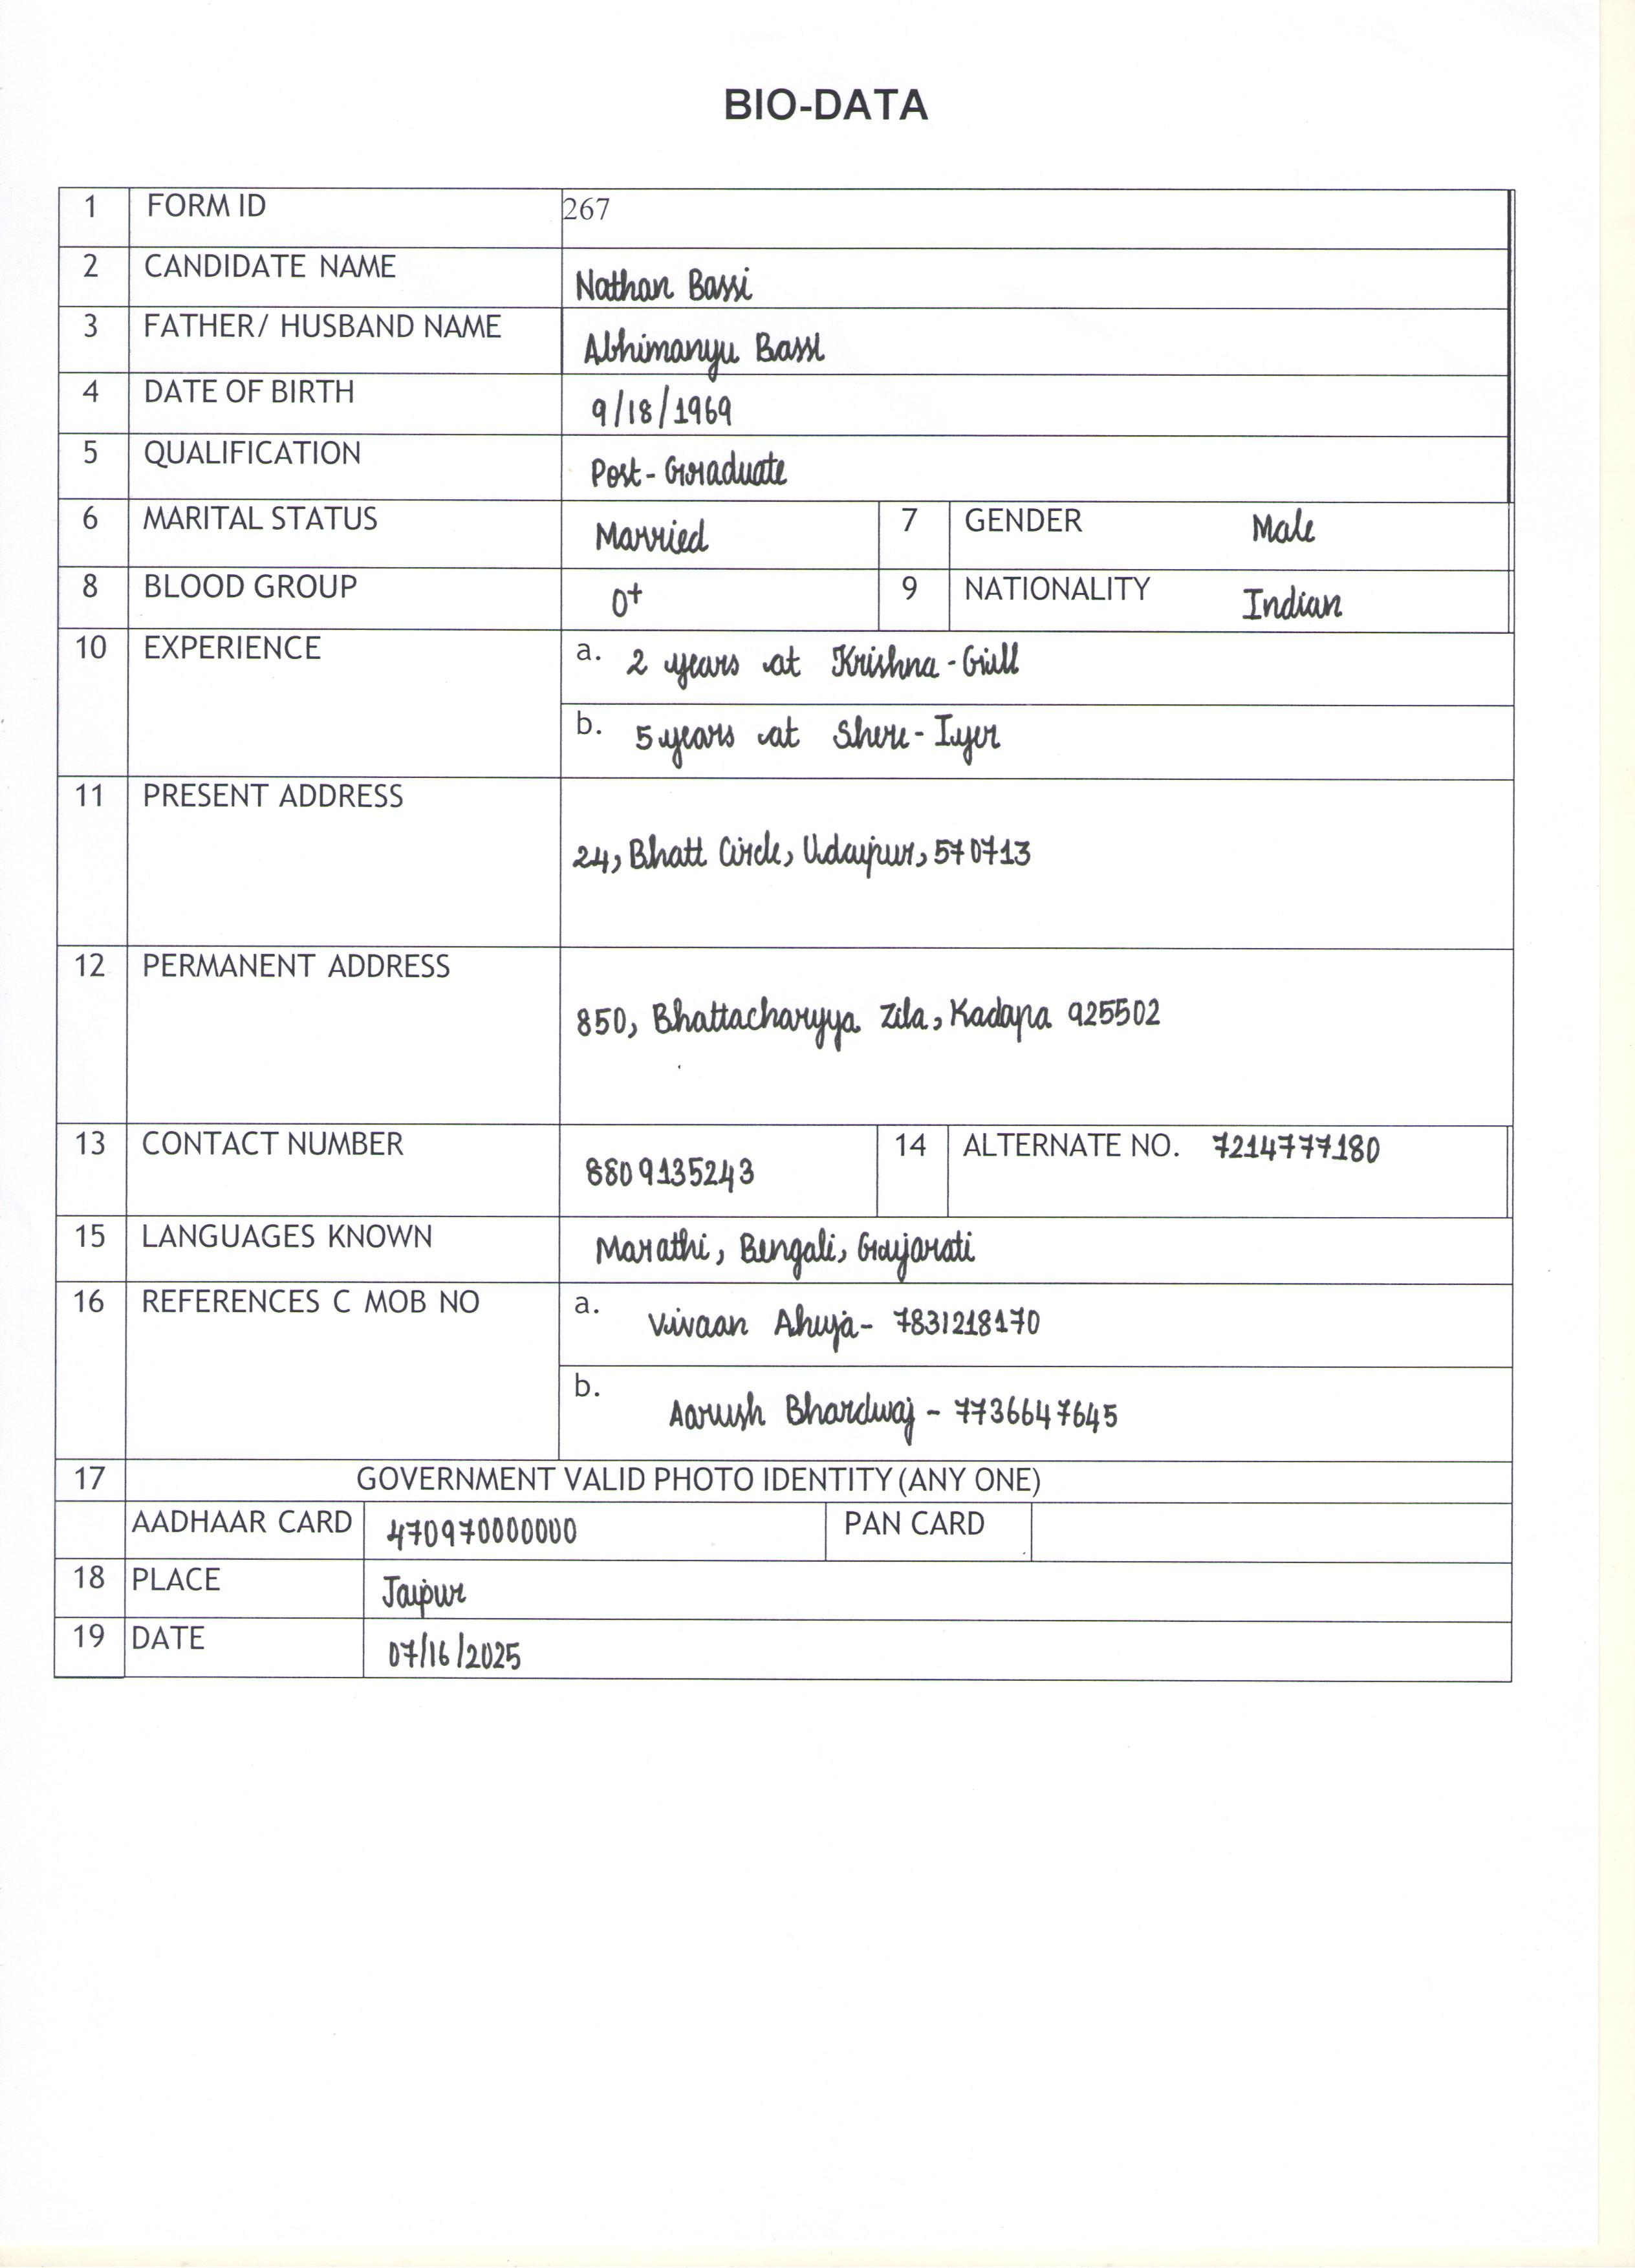 BIO-DATA
1 FORM ID 267
2 CANDIDATE NAME Nathan Bassi
3 FATHER/ HUSBAND NAME Abhimanyu Bassi
4 DATE OF BIRTH 9/18/1969
5 QUALIFICATION Post-Graduate
6 MARITAL STATUS Married 7 GENDER Male
8 BLOOD GROUP O+ 9 NATIONALITY Indian
10 EXPERIENCE a. 2 years at Krishna-Gill
b. 5 years at Shere-Iyer
11 PRESENT ADDRESS
24, Bhatt Circle, Udaipur, 570713
12 PERMANENT ADDRESS
850, Bhattacharyya Zila, Kadapa 925502
13 CONTACT NUMBER 8809135243 14 ALTERNATE NO. 7214777180
15 LANGUAGES KNOWN Marathi, Bengali, Gujarati
16 REFERENCES C MOB NO a. Vivaan Ahuja- 7831218170
b. Aarush Bhardwaj - 7736647645
17 GOVERNMENT VALID PHOTO IDENTITY (ANY ONE)
AADHAAR CARD 470970000000 PAN CARD
18 PLACE Jaipur
19 DATE 07/16/2025